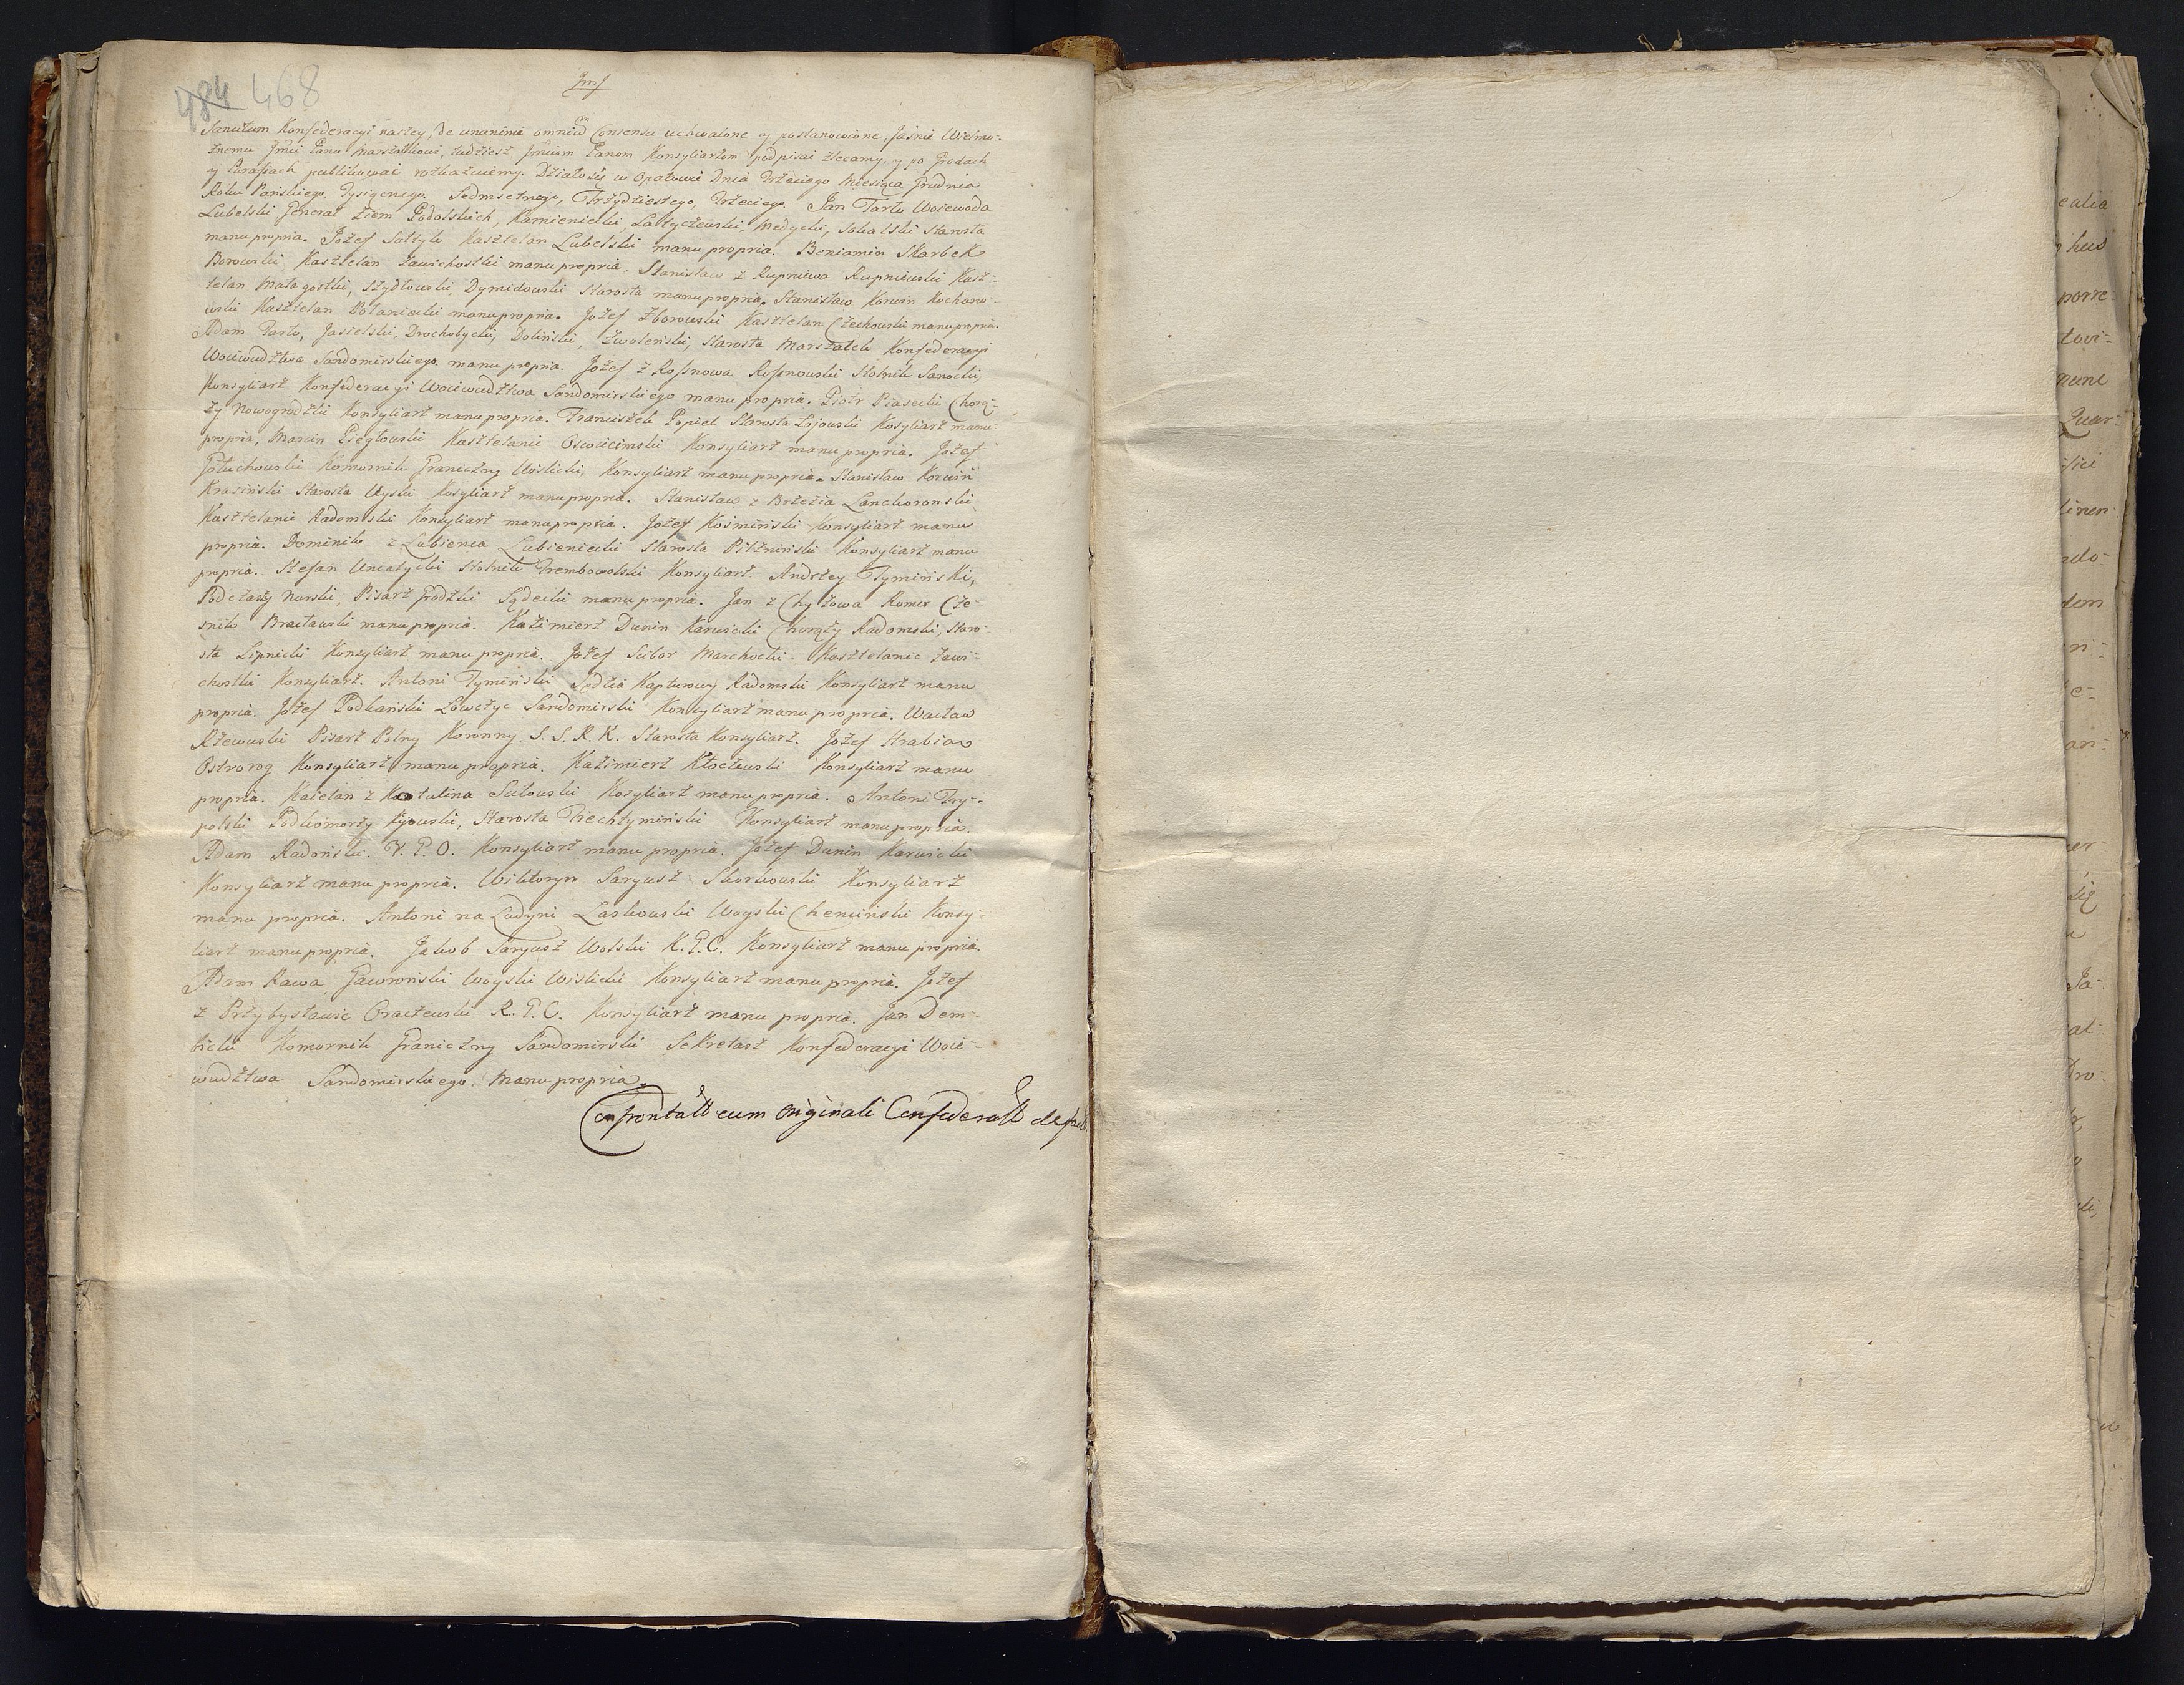 484 468
Sancitum Konfederacyi naszey, de unanimi omniũ Consensu uchwalone y postanowione, Jaśnie Wielmo-
żnemu Jmći Panu Marszałkowi, tudziesz Jmćiom Panom Konsyliarżom podpisać zlecamy, y po Grodach
y Parafiach publikować rozkazuiemy. Działo się w Opatowie Dnia Trżeciego Miesiąca Grudnia
Roku Pańskiego, Tysiącnego, Sedmsetnego, Trżydziestego, Trżeciego. Jan Tarło Woiewoda
Lubelski Generał Ziem Podolskich, Kamieniecki, Latyczewski, Medycki, Sokalski Starosta
manu propria. Jożef Sołtyk Kasztelan Lubelski manu propria. Beniamin Skarbek
Borowski Kasztelan Zawichostki manu propria. Stanisław z Rupniewa Rupniewski Kasz-
telan Małagostki, Szydłowski, Dymidowski Starosta manu propria. Stanisław Korwin Kochano-
wski Kasztelan Połaniecki manu propria. Jożef Zborowski Kasztelan Czechowski manu propria.
Adam Tarło, Jasielski, Drochobycki, Doliński, Zwoleński, Starosta Marszałek Konfederacyi
Woiewudztwa Sandomirskiego manu propria. Jożef z Rossnowa Rossnowski Stolnik Sanocki,
Konsyliarz Konfederacyi Woiewudztwa Sandomirskiego manu propria. Piotr Piasecki Chorą-
ży Nowogrodzki Konsyliarz manu propria. Franciszek Popiel Starosta Łojowski Kosyliarz manu
propria, Marcin Piegłowski Kasztelanic Oswiecimski Konsyliarz manu propria. Jożef
Głuchowski Komornik Graniczny Wislicki, Konsyliarz manu propria. Stanisław Korwin
Krasiński Starosta Uyski Kosyliarz manu propria. Stanisław z Brzezia Lanckoronski
Kasztelanic Radomski Konsyliarz manu propria. Jożef Kośmiński Konsyliarz manu
propria. Dominik z Łubienca Łubieniecki Starosta Pilzniński Konsyliarz manu
propria. Stefan Uniatycki Stolnik Trembowolski Konsyliarz. Andrzey Tymiński,
Podczaszy Nurski, Pisarz Grodzki Sądecki manu propria. Jan z Chyżowa Romer Cze-
snik Bracławski manu propria. Kaźimierz Dunin Karwicki Chorąży Radomski, Staro-
sta Lipnicki Konsyliarz manu propria. Jożef Scibor Marchocki Kasztelanic Zawi-
chostki Konsyliarz. Antoni Tymiński Sędzia Kapturowy Radomski Konsyliarz manu
propria. Jożef Podkański Łowczyc Sandomirski Konsyliarz manu propria. Wacław
Rżewuski Pisarz Polny Koronny. S. S. R. K. Starosta Konsyliarz. Jożef Hrabia
Ostrorog Konsyliarz manu propria. Kaźimierz Kłoczewski Konsyliarz manu
propria. Kaietan z Kotulina Sułowski Kosyliarz manu propria. Antoni Try-
polski Podkomorży Kijowski, Starosta Trechtymiński Konsyliarz manu propria.
Adam Radoński. K. P. O. Konsyliarz manu propria. Jożef Dunin Karwicki
Konsyliarz manu propria. Wiktoryn Saryusz Skorkowski Konsyliarz
manu propria. Antoni na Ludyni Laskowski Woyski Chenciński Konsy-
liarz manu propria. Jakob Saryusz Wolski K. G. C. Konsyliarz manu propria.
Adam Rawa, Gawroński Woyski Wislicki Konsyliarz manu propria. Jożef
z Przybysławic Oraczewski R. G. C. Konsyliarz manu propria. Jan Dem-
bicki Komornik Graniczny Sandomirski Sekretarz Konfederacyi Woie-
wudztwa Sandomirskiego. Manu propria.
cum originali